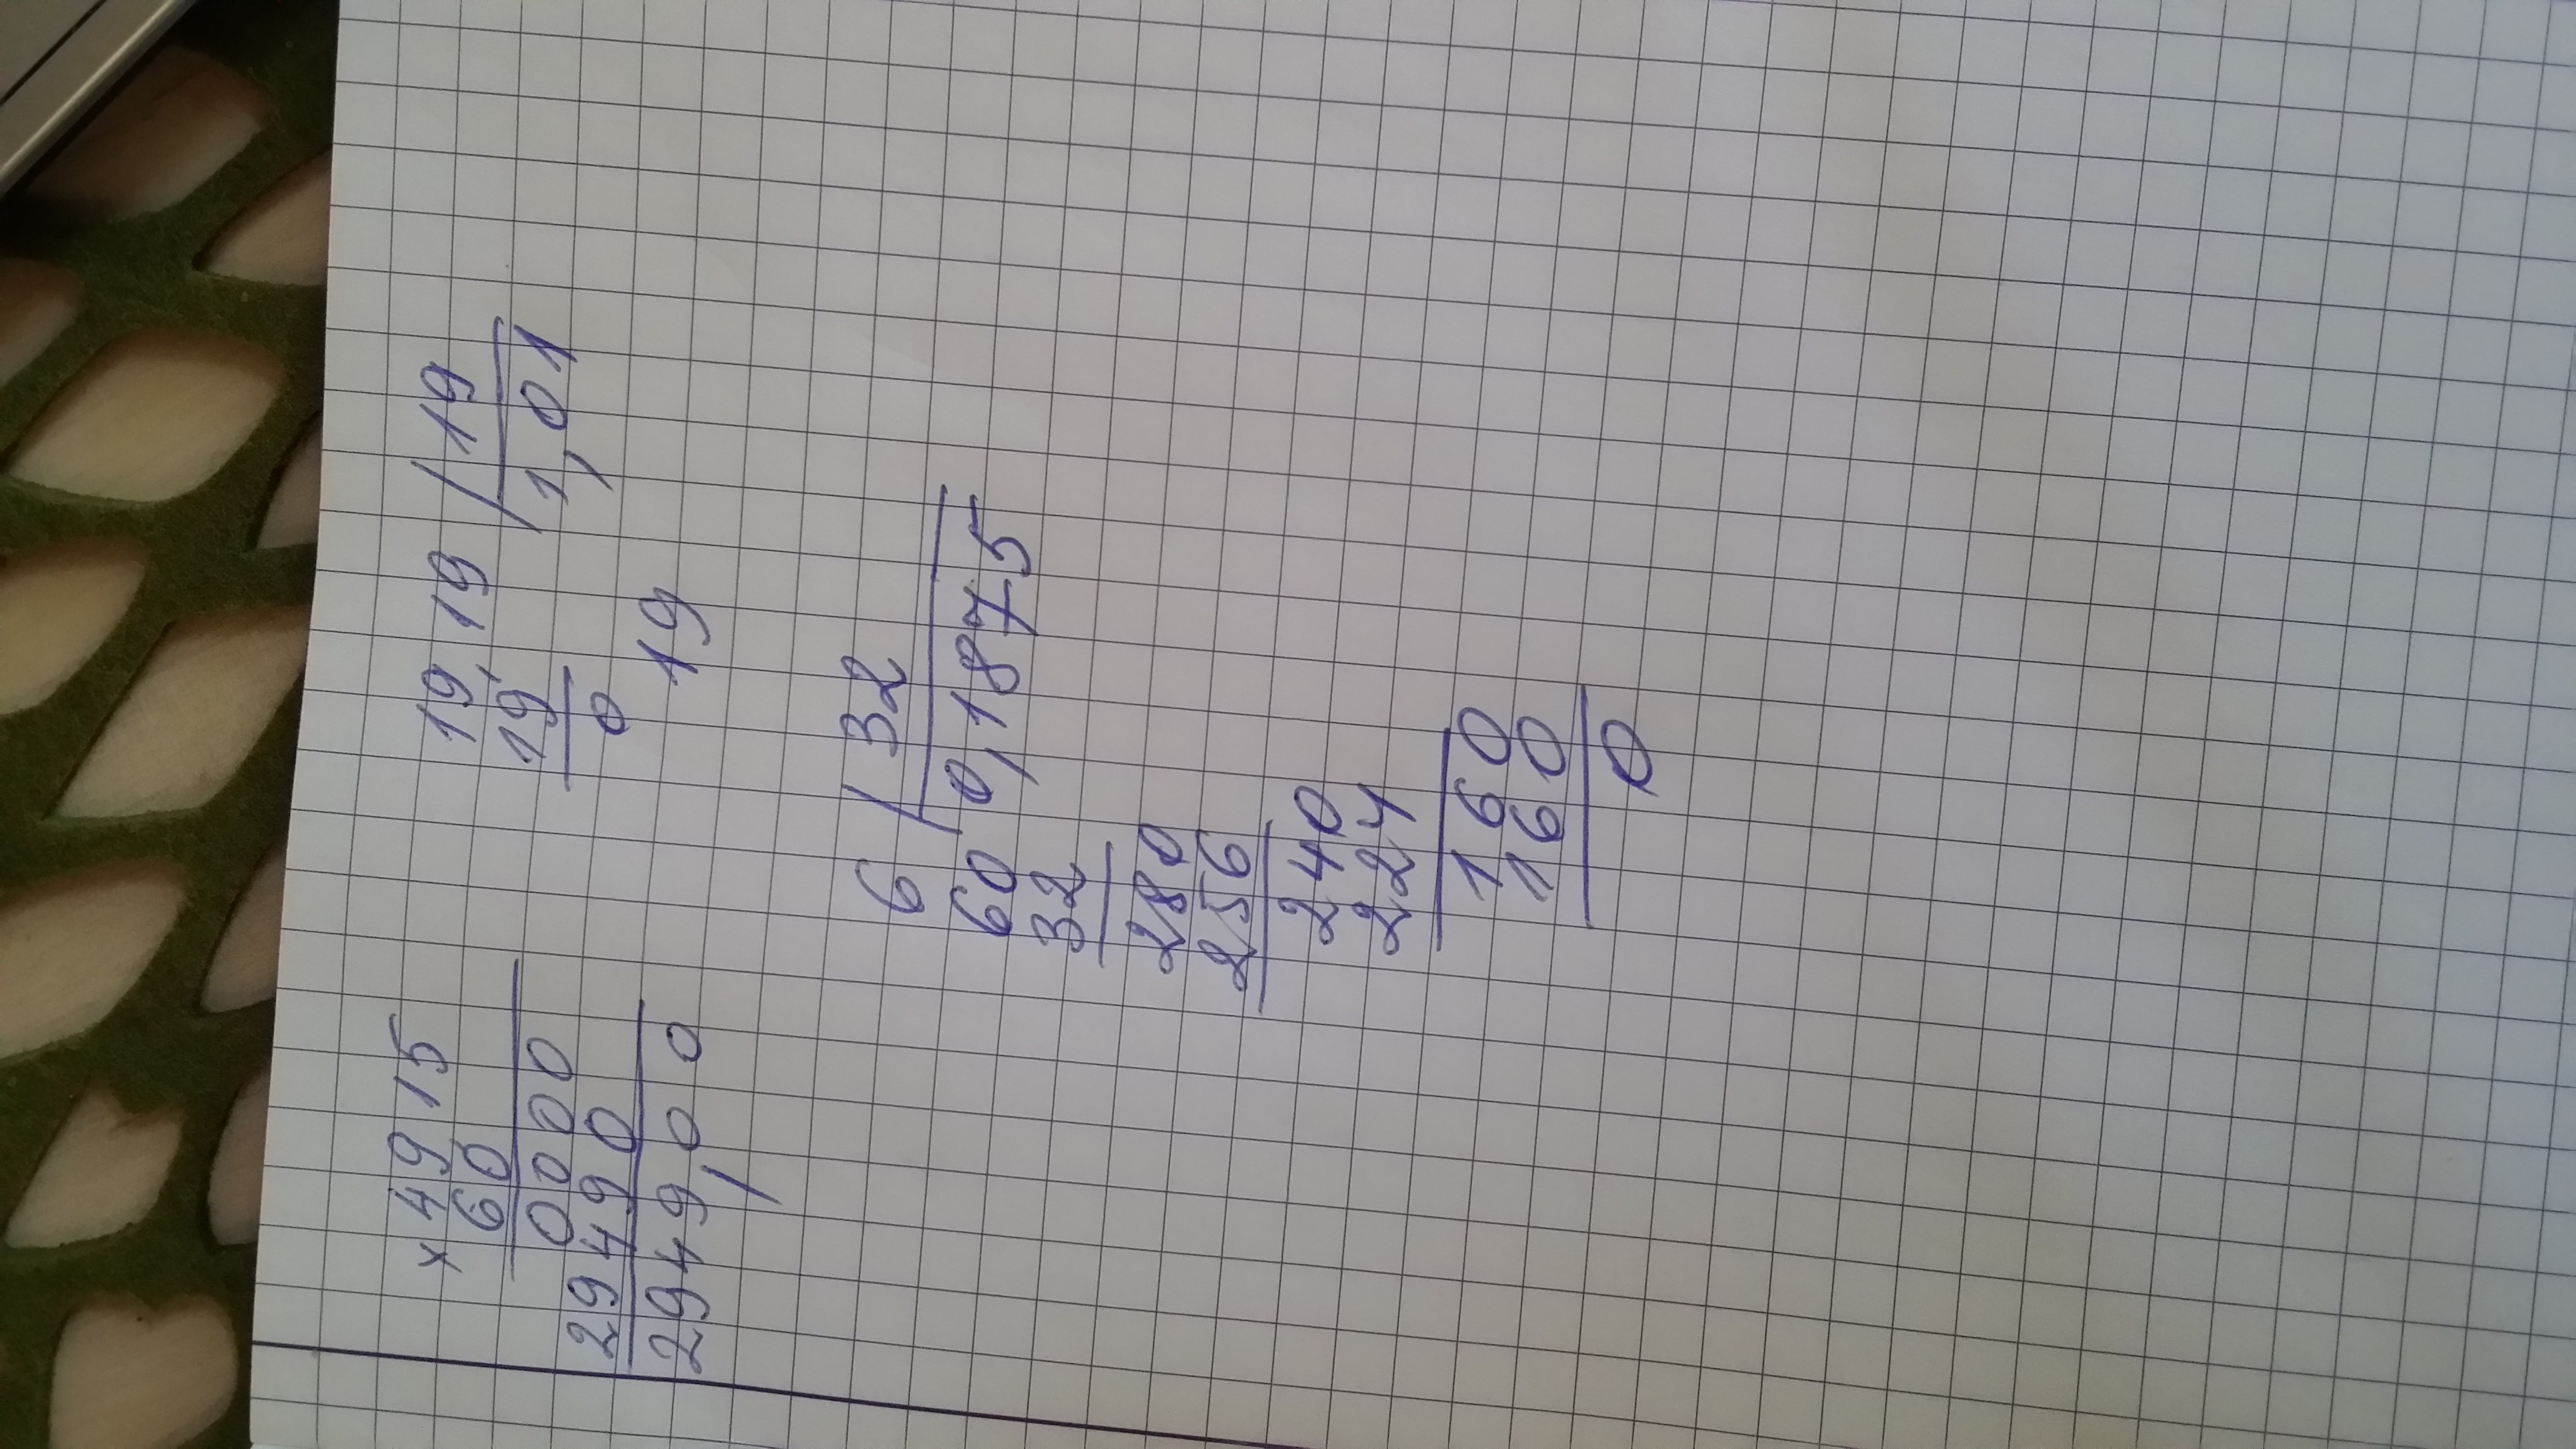 ×4915
60
0000
29490
2949,00
19,19 19
19 1,01
0
19
6 32
60 0,1875
32
280
256
240
224
160
160
0